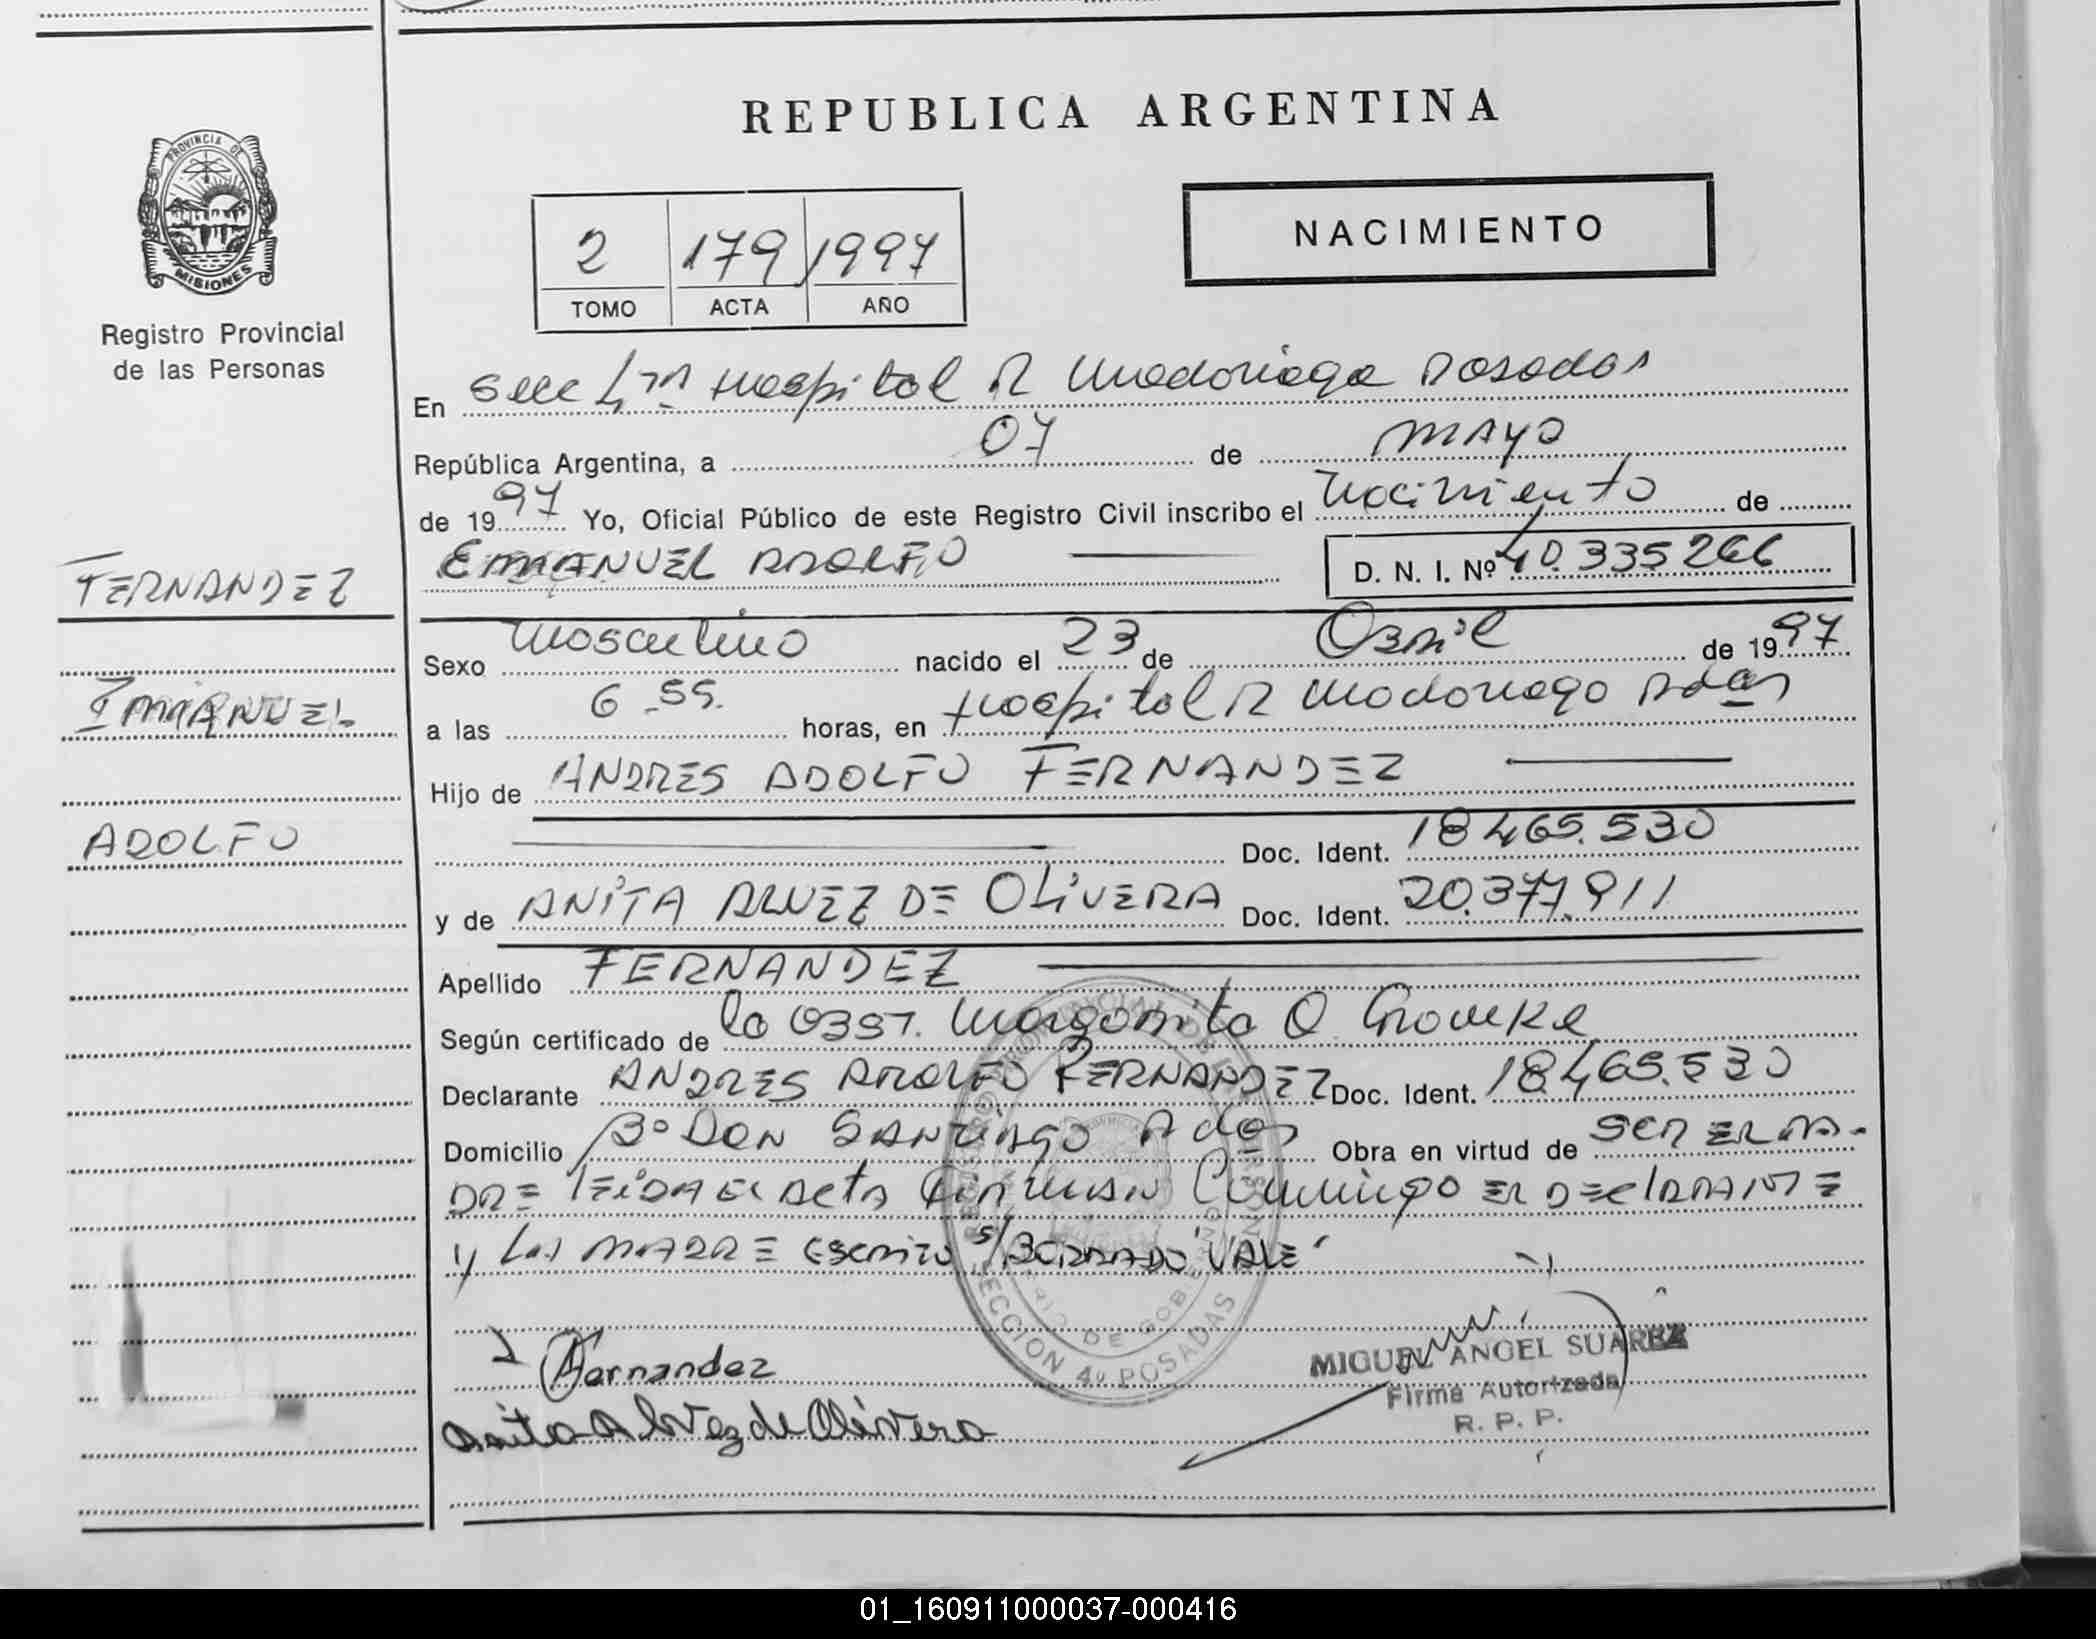 REPUBLICA ARGENTINA
PROVINCIA DE
MISIONES
Registro Provincial
de las Personas
2 179 1997
TOMO ACTA AÑO
NACIMIENTO
En Secc 4ta Hospital R Madariaga Posadas
República Argentina, a 07 de mayo
de 1997 Yo, Oficial Público de este Registro Civil inscribo el Nacimiento de
EMANUEL ADOLFO D. N. I. Nº 40.335266
FERNANDEZ
EMANUEL
ADOLFO
Sexo Masculino nacido el 23 de Abril de 1997
a las 6.55. horas, en Hospital R Madariaga Pdas
Hijo de ANDRES ADOLFO FERNANDEZ
Doc. Ident. 18465.530
y de ANITA ALVEZ DE OLIVERA Doc. Ident. 20.377.911
Apellido FERNANDEZ
Según certificado de la OBST. Margarita O
Declarante ANDRES ADOLFO FERNANDEZ Doc. Ident. 18.465.530
Domicilio Bº DON SANTIAGO Pdas Obra en virtud de SER EL PA-
DRE LEIDA EL ACTA FIRMAN CONMIGO EL DECLARANTE
y LA MADRE ESCRITO S/BORRADO "VALE"
Fernandez
Anita Alvez de Olivera
SECCION 4º POSADAS
MIGUEL ANGEL SUAREZ
Firma Autorizada
R. P. P.
01_160911000037-000416